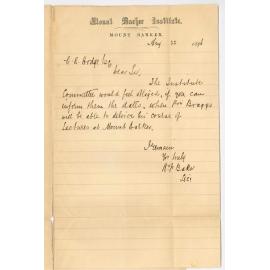 Mount Barker Institute.
MOUNT BARKER.
Aug 22 1896
C R Hodge Esq
Dear Sir,
The Institute
Committee would feel obliged, if you can
inform them the dates, when Pro Bragg
will be able to deliver his course of
Lectures at Mount Barker.
I remain
Yrs truly
Baker
Sec